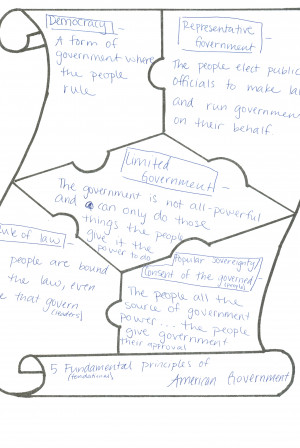 Democracy -
A form of
government where
the people
rule
Representative
Government -
The people elect public
officials to make
and run government
on their behalf
Limited
Government -
The government is not all-powerful
and can only do those
things the people
give it the
power to do
Rule of law -
people are bound
the law, even
that govern
(leaders)
Popular sovereignty/
Consent of the governed -
The people all the
source of government
power... the people
give government
their approval
5 Fundamental principles of
(foundational)
American Government